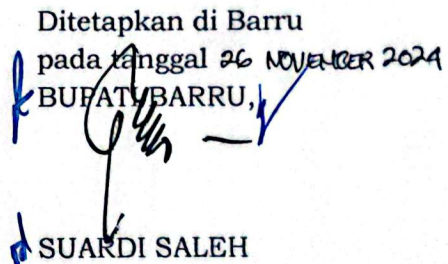 Ditetapkan di Barru
pada tanggal 26 NOVEMBER 2024
BUPATI BARRU,
SUARDI SALEH